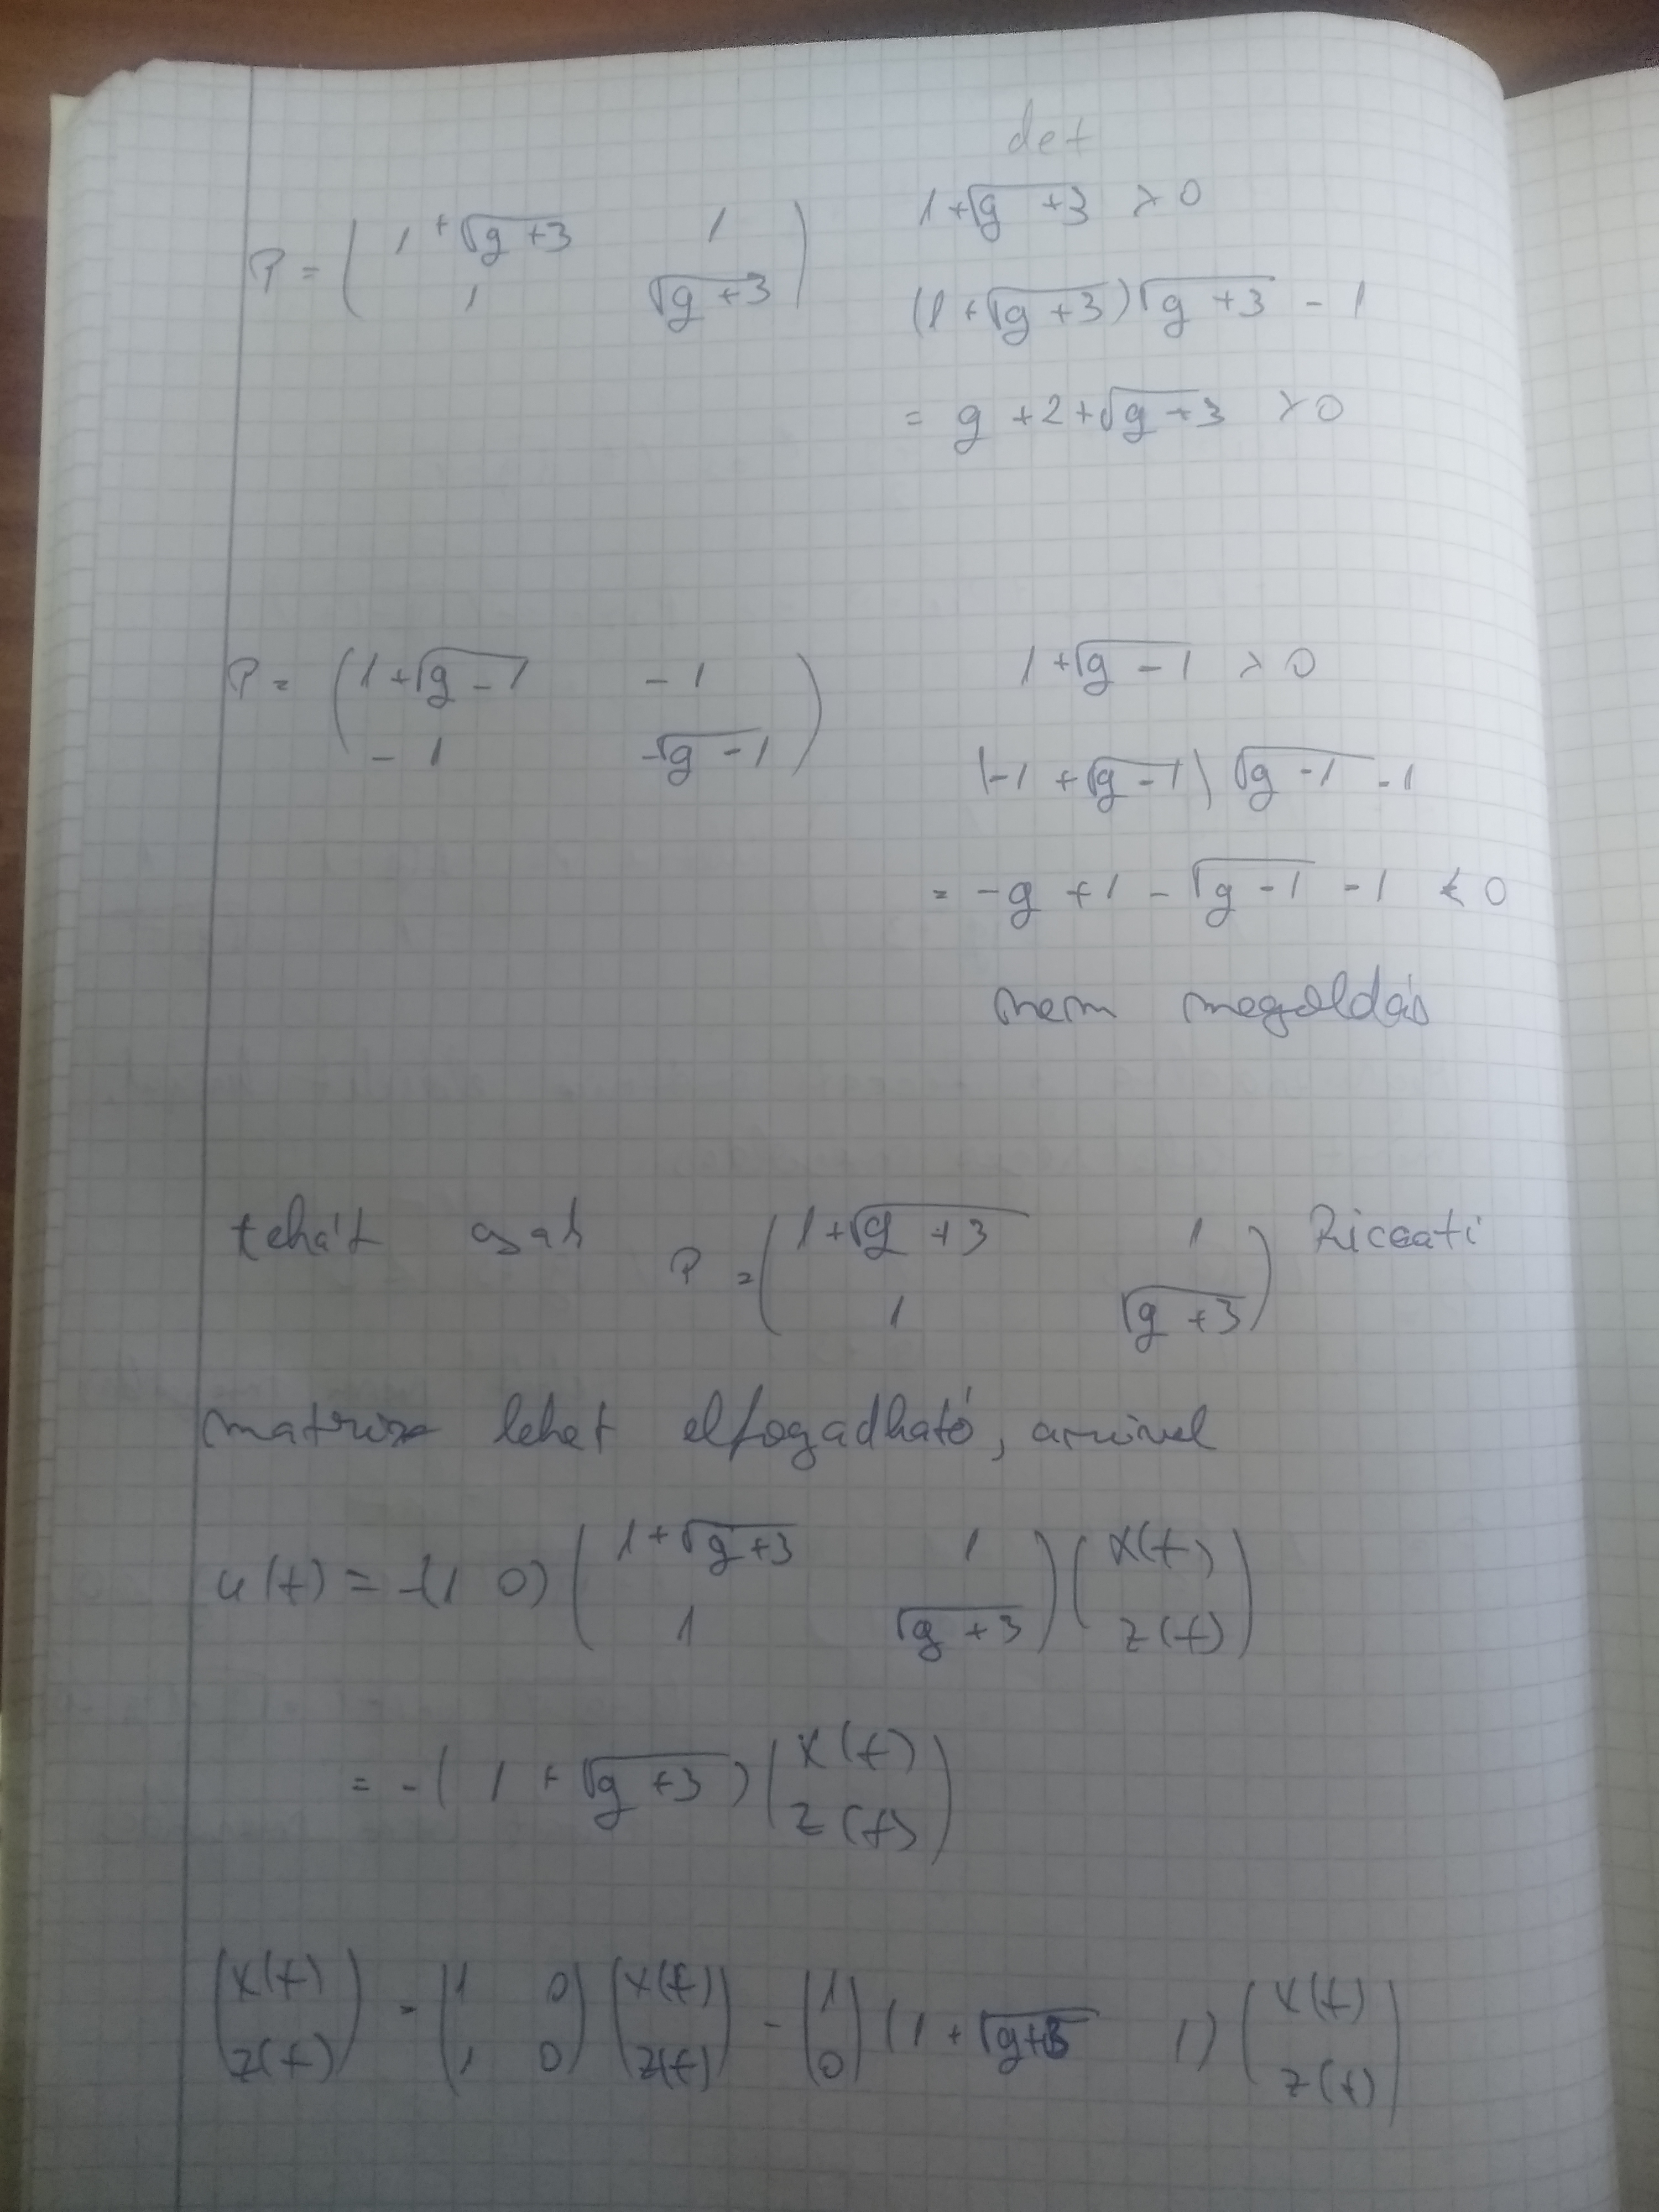 det
P = ( 1+√(g+3) 1 ; 1 √(g+3) )
1+√(g+3) > 0
(1+√(g+3))√(g+3) - 1
= g+2+√(g+3) > 0
P = ( 1+√(g-1) -1 ; -1 -√(g-1) )
1+√(g-1) > 0
(-1+√(g-1))√(g-1) -1
= -g+1-√(g-1) -1 < 0
nem megoldás
tehát csak P = ( 1+√(g+3) 1 ; 1 √(g+3) ) Riccati
matrix lehet elfogadható, amivel
u(t) = -(1 0) ( 1+√(g+3) 1 ; 1 √(g+3) ) ( x(t) ; z(t) )
= -( 1 + √(g+3) ) ( x(t) ; z(t) )
( x(t) ; z(t) ) = ( 1 0 ; 1 0 ) ( x(t) ; z(t) ) - ( 1 ; 0 ) ( 1+√(g+3) 1 ) ( x(t) ; z(t) )